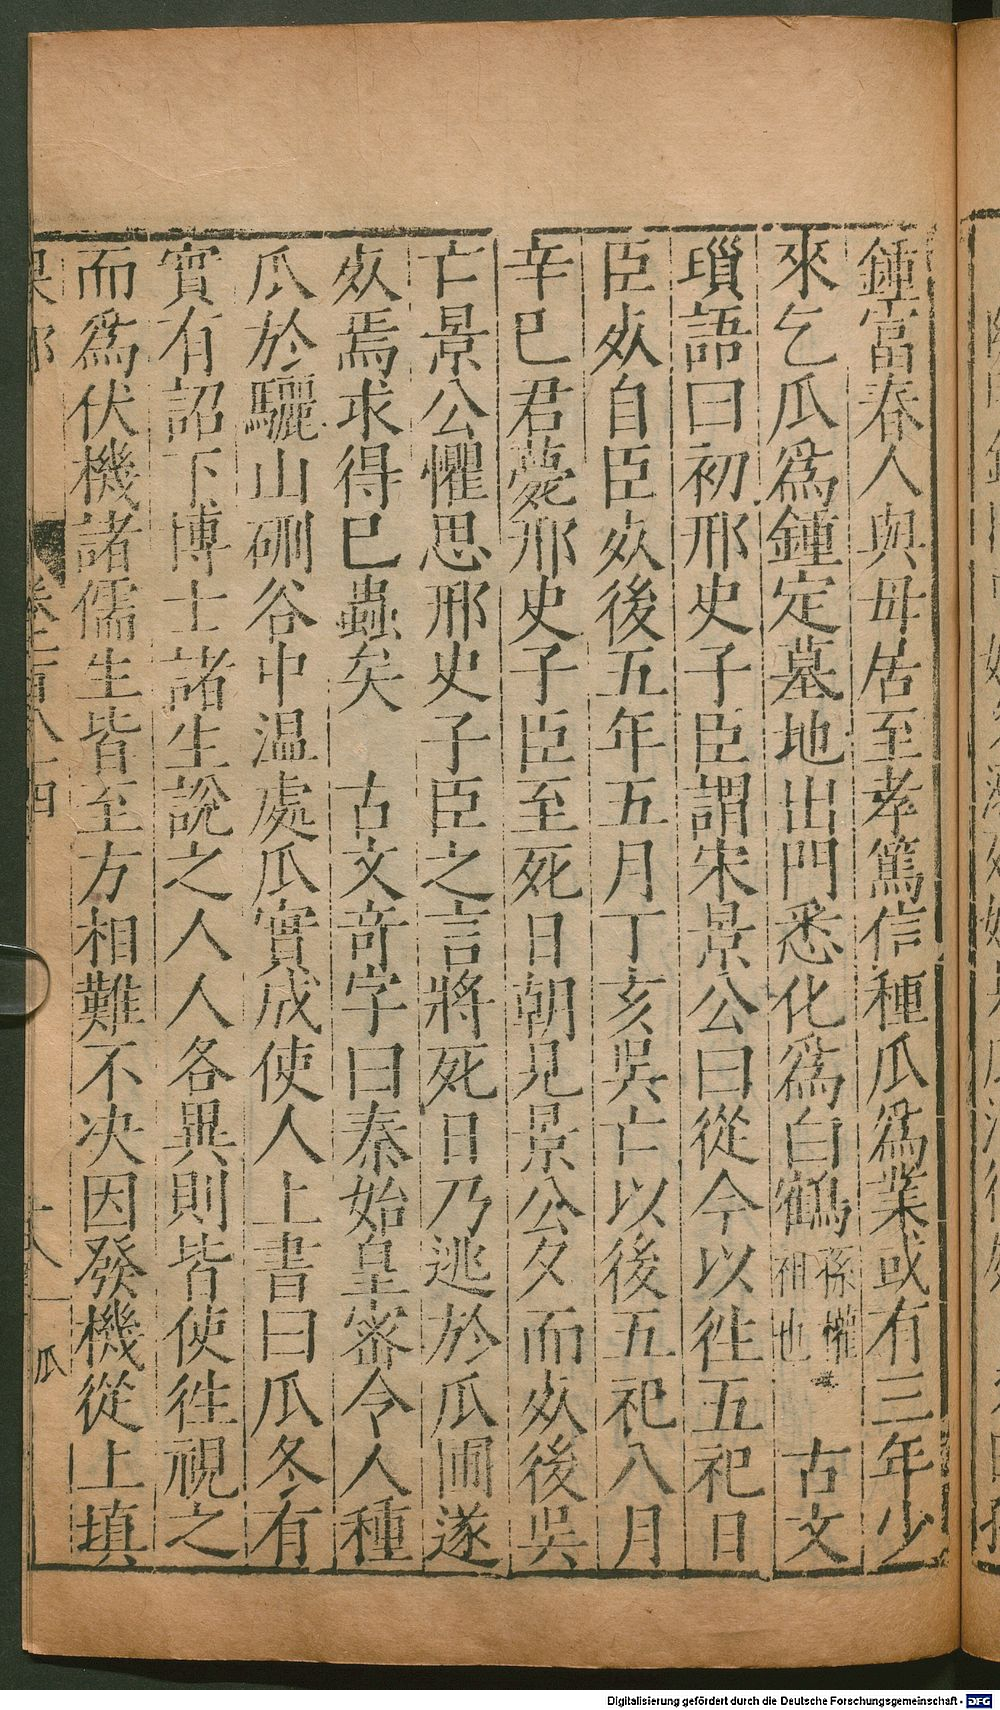 鍾富春人與母居至孝篤信種瓜爲業或有三年少
來乞瓜爲鍾定墓地出門悉化爲白鶴孫權祖也　古文
瑣語曰初邢史子臣謂宋景公曰從今以徃五祀日
臣㱙自臣㱙後五年五月丁亥吳亡以後五祀八月
辛巳君薨邢史子臣至死日朝見景公夕而㱙後吳
亡景公懼思邢史子臣之言將死日乃逃於瓜圃遂
㱙焉求得巳蟲矣　古文奇字曰秦始皇密令人種
瓜於驪山硎谷中温處瓜實成使人上書曰瓜冬有
實有詔下博士諸生說之人人各異則皆使徃視之
而爲伏機諸儒生皆至方相難不决因發機從上填
瓜
Digitalisierung gefördert durch die Deutsche Forschungsgemeinschaft - DFG